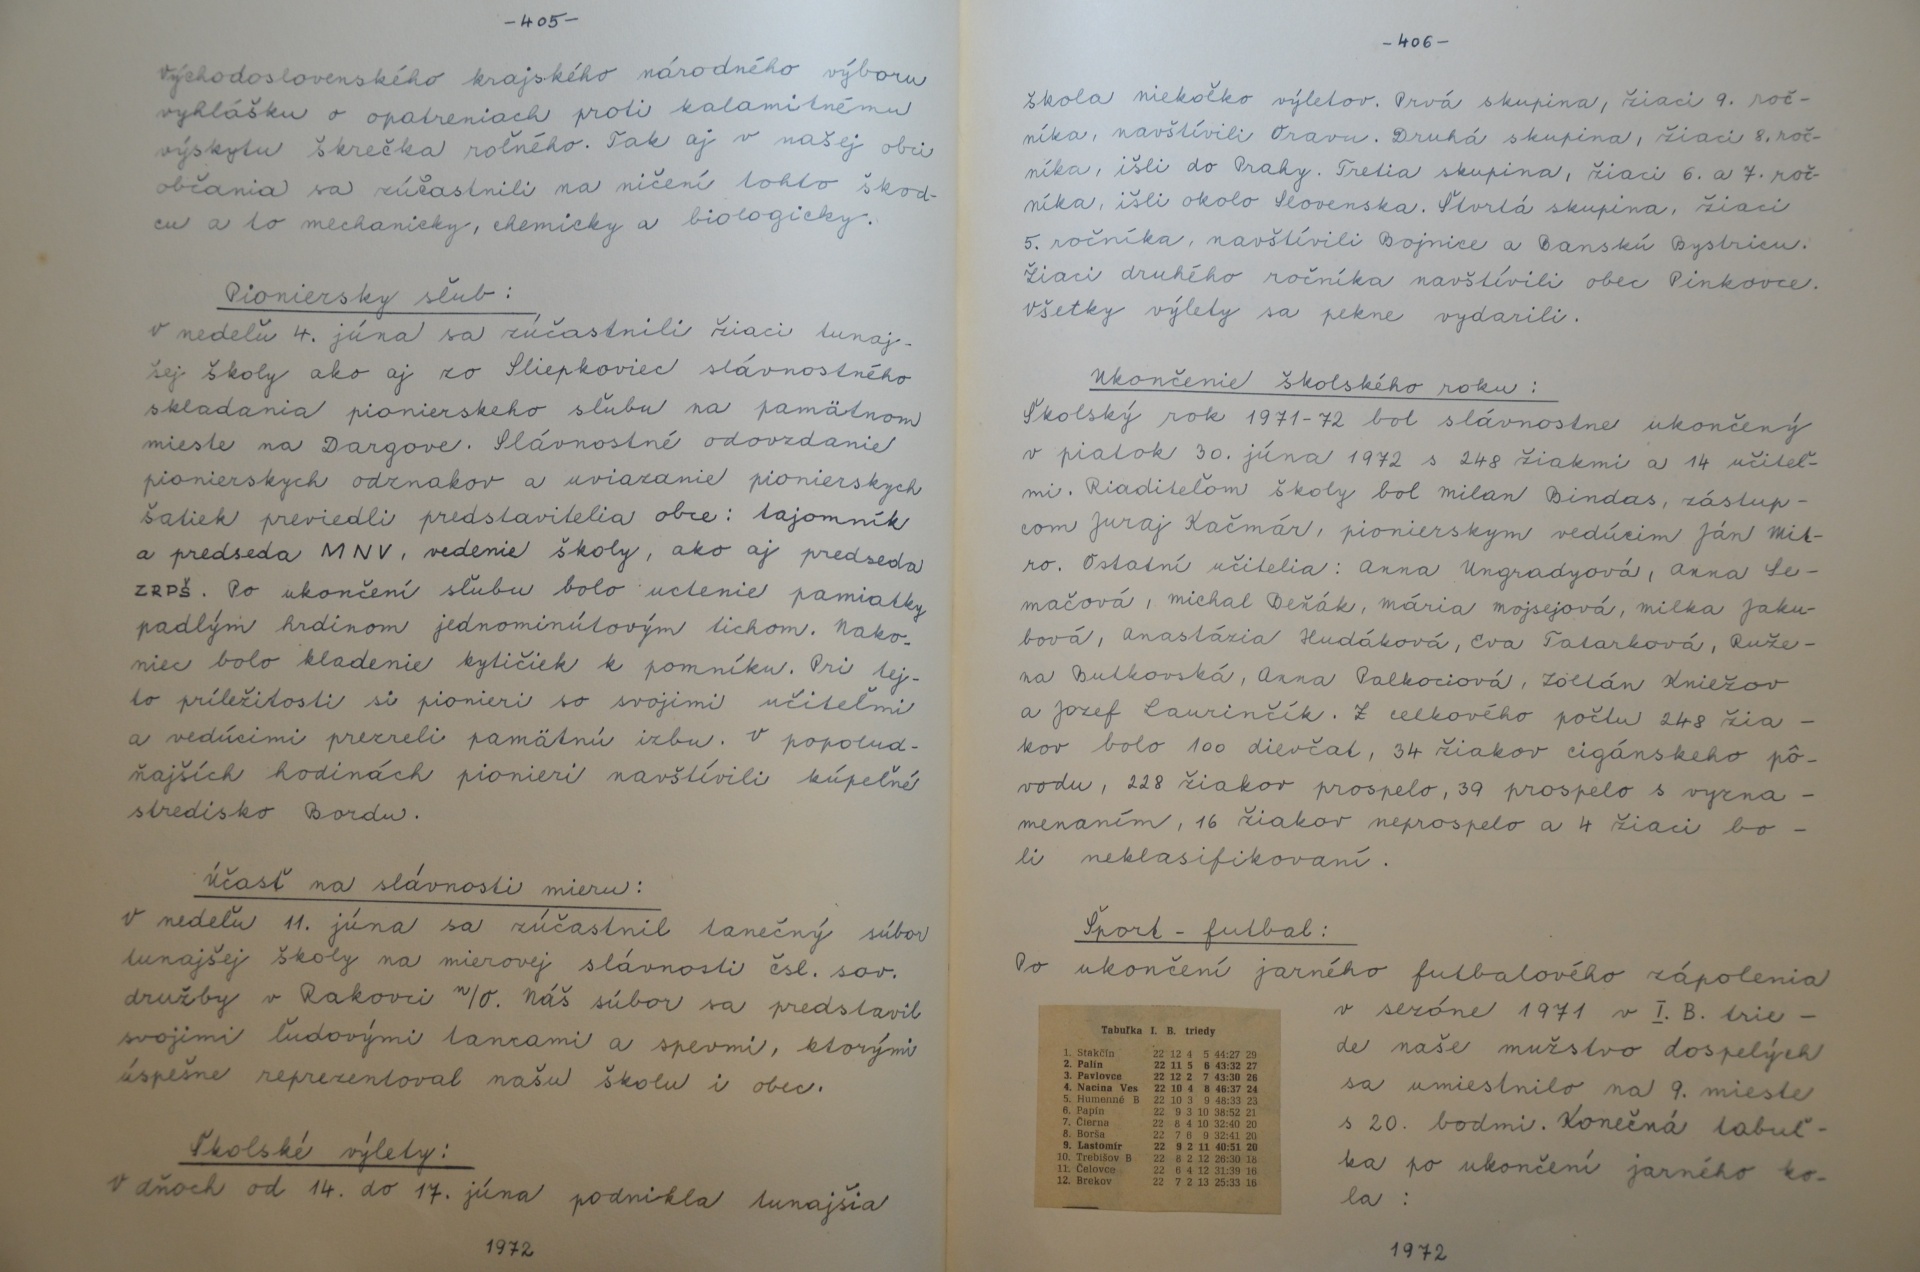 -405-
Východoslovenského krajského národného výboru
vyhlášku o opatreniach proti kalamitnému
výskytu škrečka roľného. Tak aj v našej obci
občania sa zúčastnili na ničení tohto škod-
cu a to mechanicky, chemicky a biologicky.
Pioniersky sľub:
V nedeľu 4. júna sa zúčastnili žiaci tunaj-
šej školy ako aj zo Sliepkoviec slávnostného
skladania pionierskeho sľubu na pamätnom
mieste na Dargove. Slávnostné odovzdanie
pionierskych odznakov a uviazanie pionierskych
šatiek previedli predstavitelia obce: tajomník
a predseda MNV, vedenie školy, ako aj predseda
ZRPŠ. Po ukončení sľubu bolo uctenie pamiatky
padlým hrdinom jednominútovým tichom. Nako-
niec bolo kladenie kytičiek k pomníku. Pri tej-
to príležitosti si pionieri so svojimi učiteľmi
a vedúcimi prezreli pamätnú izbu. V popolud-
ňajších hodinách pionieri navštívili kúpeľné
stredisko Bordu.
Účasť na slávnosti mieru:
V nedeľu 11. júna sa zúčastnil tanečný súbor
tunajšej školy na mierovej slávnosti čsl. sov.
družby v Rakovci n/O. Náš súbor sa predstavil
svojimi ľudovými tancami a spevmi, ktorými
úspešne reprezentoval našu školu i obec.
Školské výlety:
V dňoch od 14. do 17. júna podnikla tunajšia
1972
-406-
škola niekoľko výletov. Prvá skupina, žiaci 9. roč-
níka, navštívili Oravu. Druhá skupina, žiaci 8. roč-
níka, išli do Prahy. Tretia skupina, žiaci 6. a 7. roč-
níka, išli okolo Slovenska. Štvrtá skupina, žiaci
5. ročníka, navštívili Bojnice a Banskú Bystricu.
Žiaci druhého ročníka navštívili obec Pinkovce.
Všetky výlety sa pekne vydarili.
Ukončenie školského roku:
Školský rok 1971-72 bol slávnostne ukončený
v piatok 30. júna 1972 s 248 žiakmi a 14 učiteľ-
mi. Riaditeľom školy bol Milan Bindas, zástup-
com Juraj Kačmár, pionierskym vedúcim Ján Mit-
ro. Ostatní učitelia: Anna Ungradyová, Anna Le-
mačová, Michal Deňák, Mária Mojsejová, Milka Jaku-
bová, Anastázia Hudáková, Eva Tatarková, Ruže-
na Butkovská, Anna Palkociová, Zoltán Kniežov
a Jozef Laurinčík. Z celkového počtu 248 žia-
kov bolo 100 dievčat, 34 žiakov cigánskeho pô-
vodu, 228 žiakov prospelo, 39 prospelo s vyzna-
menaním, 16 žiakov neprospelo a 4 žiaci bo-
li neklasifikovaní.
Šport - futbal:
Po ukončení jarného futbalového zápolenia
v sezóne 1971 v I. B. trie-
de naše mužstvo dospelých
sa umiestnilo na 9. mieste
s 20. bodmi. Konečná tabuľ-
ka po ukončení jarného ko-
la:
Tabuľka I. B. triedy
1. Stakčín 22 12 4 5 44:27 29
2. Palín 22 11 5 6 43:32 27
3. Pavlovce 22 12 2 7 43:30 26
4. Nacina Ves 22 10 4 8 46:37 24
5. Humenné B 22 10 3 9 48:33 23
6. Papín 22 9 3 10 38:52 21
7. Čierna 22 8 4 10 32:40 20
8. Borša 22 7 6 9 32:41 20
9. Lastomír 22 9 2 11 40:51 20
10. Trebišov B 22 8 2 12 26:30 18
11. Čelovce 22 6 4 12 31:39 16
12. Brekov 22 7 2 13 25:33 16
1972